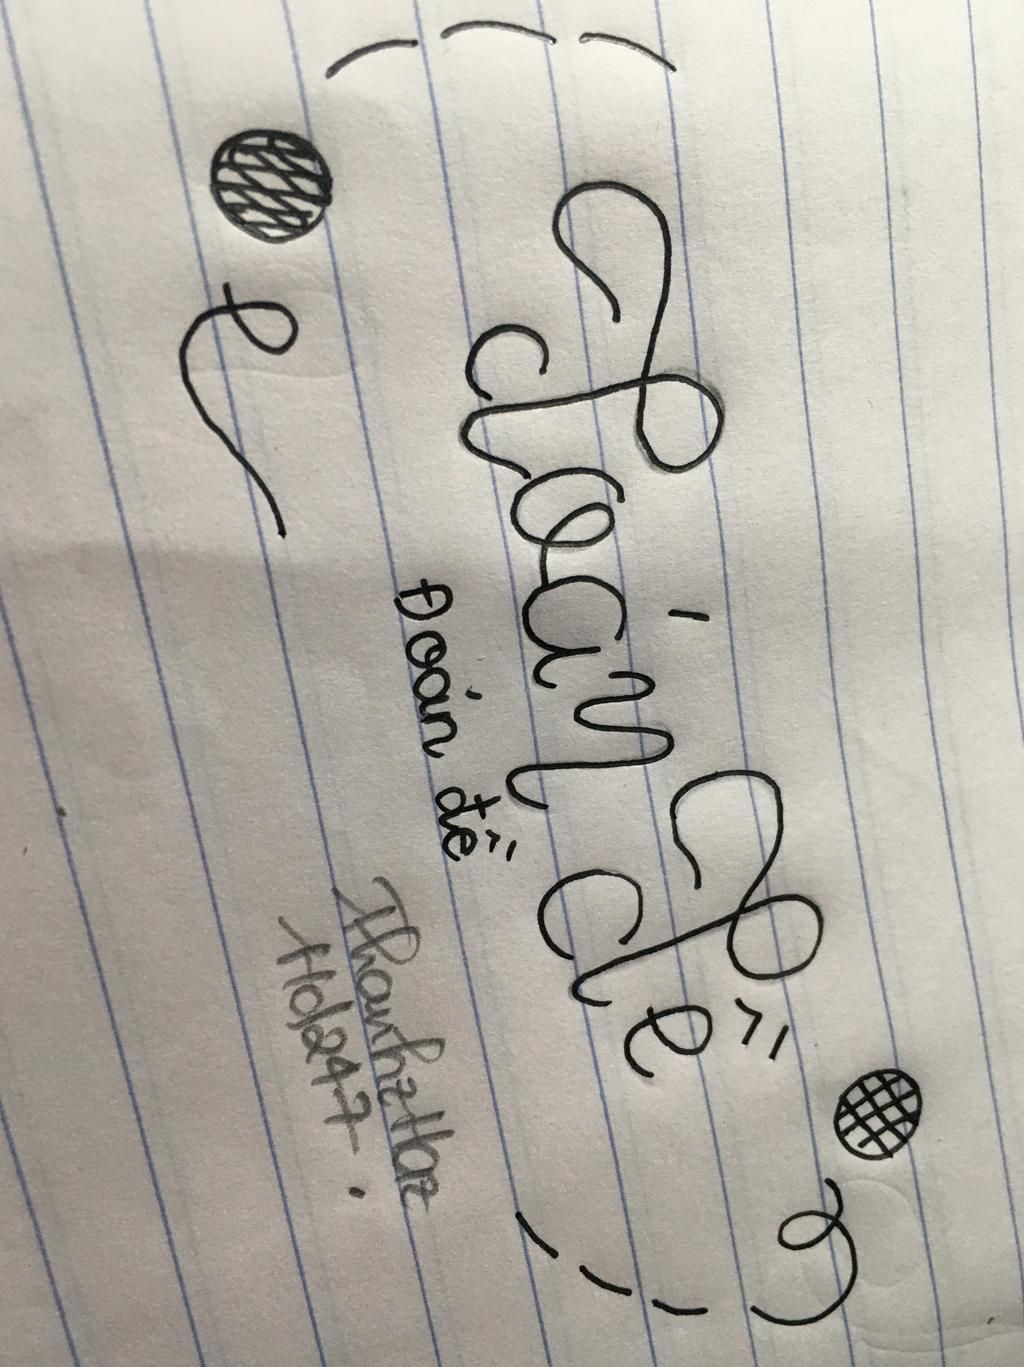 Đoán đề
Đoán đề
ThanhzHoz
Hd247.